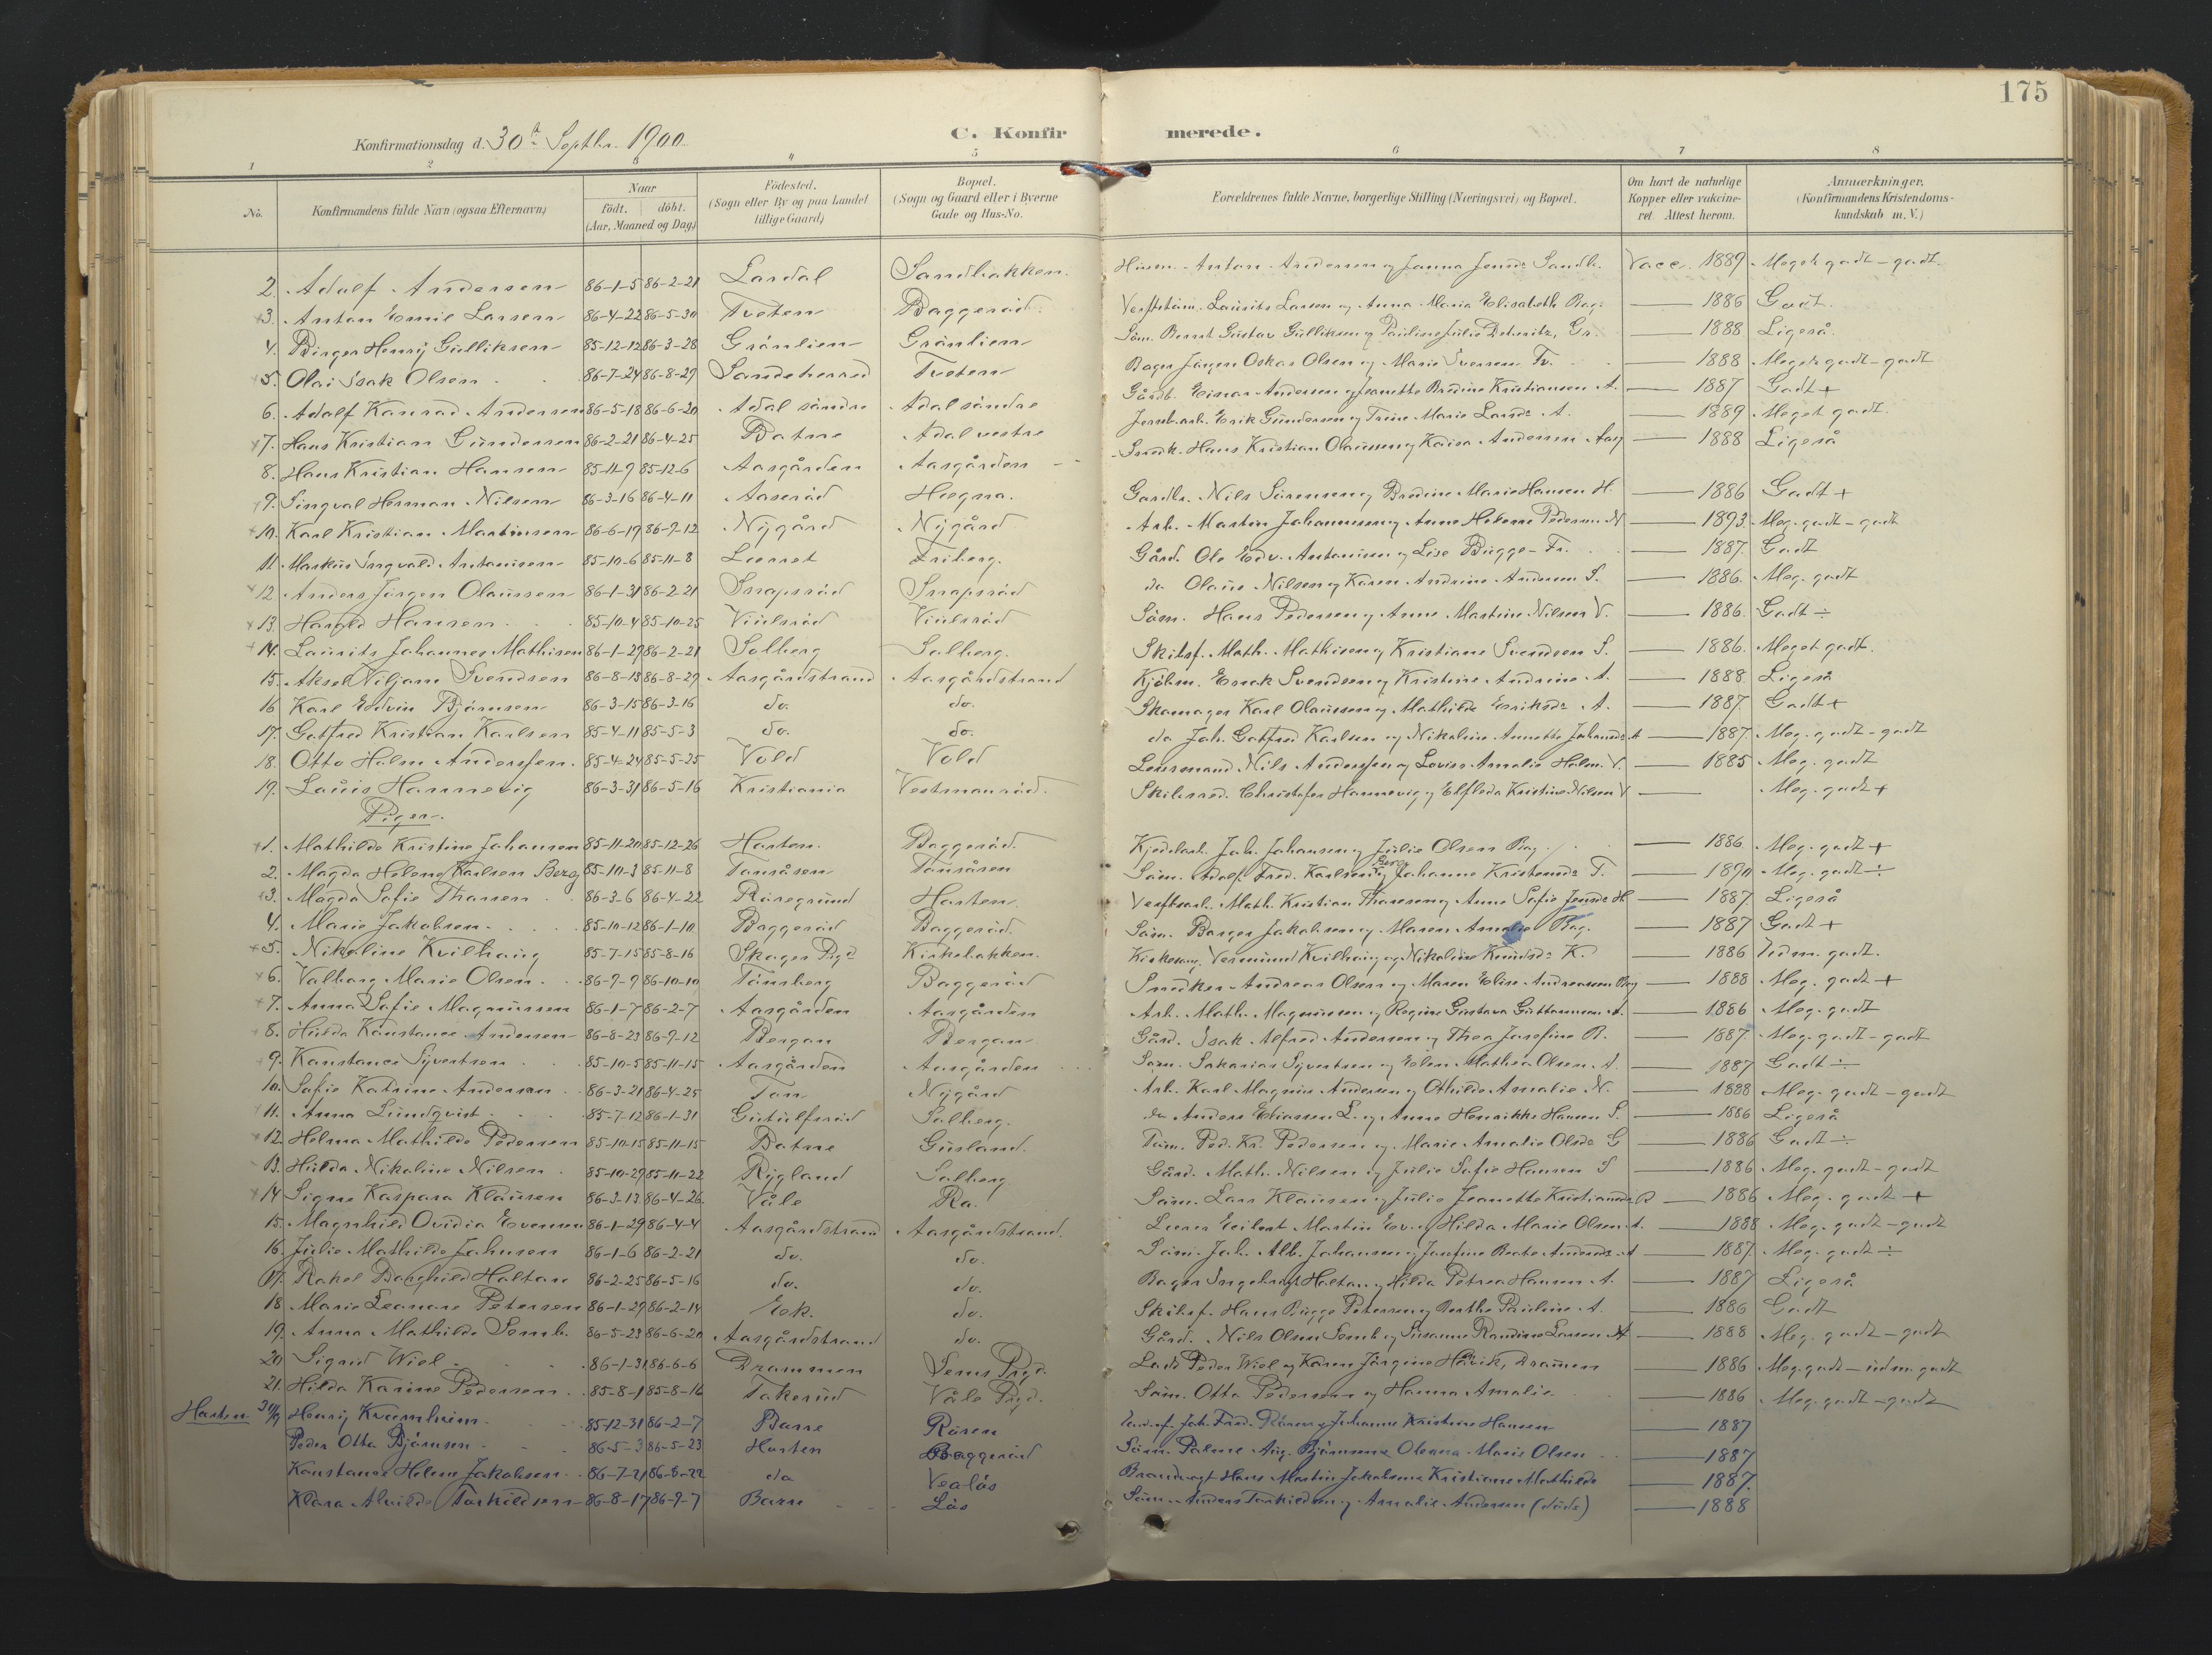 175
Konfirmationsdag d. 30te Septbr. 1900
C. Konfirmerede.
1 2 3 4 5 6 7 8
No. Konfirmandens fulde Navn (ogsaa Efternavn) Naar født. døbt. (Aar, Maaned og Dag) Fødested. (Sogn eller By og paa Landet tillige Gaard) Bopæl. (Sogn og Gaard eller i Byerne Gade og Hus-No. Forældrenes fulde Navne, borgerlige Stilling (Næringsvei) og Bopæl. Om havt de naturlige Kopper eller vaccineret Attest herom. Anmærkninger. (Konfirmandens Kristendomskundskab m. V.)
2. Adolf Andersen 86-1-5 86-2-21 Lardal Sandbakken. Anton Andersen og Janna Jensdr Sandb. Vacc. 1889 Meget godt - godt.
3. Anton Emil Larsen 86-4-22 86-5-30 Tveten Baggerød. Laurits Larsen og Anna Maria Elisabeth Bag. 1886 Godt.
4. Birger Henrÿ Gulliksen 85-12-12 86-3-28 Grønlien Grønlien Søm. Bernt Gustav Gulliksen og Pauline Julie Gr. 1888 Ligeså
5. Olai Isak Olsen 86-7-24 86-8-29 Sandeherred Tveten Bager Jørgen Oskar Olsen og Marie Iversen Tv. 1888 Meget godt - godt
6. Adolf Konrad Andersen 86-5-18 86-6-20 Adal søndre Adal søndre Gårdb. Einar Andersen og Jeanette Bredine Kristiansen A. 1887 Godt +
7. Hans Kristian Gundersen 86-2-21 86-4-25 Botne Adal vestre Jernb.arb. Erik Gundersen og Trine Marie Larsdr A. 1889 Meget godt.
8. Hans Kristian Hansen 85-11-9 85-12-6 Aasgården Aasgården Snedk. Hans Kristian Olaussen og Kaisa Andersen Aasg 1888 Ligeså
9. Singval Herman Nilsen 86-3-16 86-4-11 Aaserød Hegna. Gardbr. Nils Sørensen og Bredine Marie Hansen H. 1886 Godt +
10. Karl Kristian Martinsen 86-6-19 86-9-12 Nÿgård Nÿgård Arb. Martin Johannesen og Anne Helene Pedersen N 1893. Meg. godt - godt
11. Markus Ingvald Antonisen 85-10-6 85-11-8 Lørret Friberg. Gård. Ole Edv. Antonisen og Lise Bugge Fr. 1887. Godt
12 Anders Jørgen Olaussen 86-1-31 86-2-21 Snapsrød Snapsrød do Olaus Nilsen og Karen Andrine Andersen S. 1886. Meg. godt
13. Harald Hansen 85-10-4 85-10-25 Viulsrød Viulsrød Søm. Hans Pedersen og Anne Martine Nilsen V. 1886. Godt ÷
14. Laurits Johannes Mathisen 86-1-29 86-2-21 Solberg Solberg. Skibsf. Math. Mathisen og Kristiane Svendsen S. 1886. Meget godt.
15. Aksel Viljam Svendsen 86-8-18 86-8-29 Aasgårdstrand Aasgårdstrand Kjøbm. Enok Svendsen og Kristine Andrine A. 1888 Ligeså
16 Karl Edvin Bjørnsen 86-3-15 86-3-16 do. do. Skomager Karl Olaussen og Mathilde Eriksdr A. 1887. Godt +
17. Gotfred Kristian Karlsen 85-4-11 85-5-3 do. do. do Joh. Gotfred Karlsen og Nikoline Annette Johansdr A 1887. Meg. godt - godt
18. Otto Holm Anderssen. 85-4-24 85-5-25 Vold Vold Lensmand Nils Anderssen og Lovise Amalie Holm. V. 1885 Meg. godt
19. Lauis Hannevig 86-3-31 86-5-16 Kristiania Vestmanrød. Skibsred. Christofer Hannevig og Elfleda Kristine Nilsen V Meg. godt +
Piger.
1. Mathilde Kristine Johansen 85-11-20 85-12-26 Horten. Baggerød. Kjedelarb. Joh. Johansen og Julie Olsen Bag. 1886 Meg. godt +
2. Magda Helene Karlsen Berg 85-10-3 85-11-8 Tønsåsen Tønsåsen Søm. Adolf Fred. Karlsen Berg og Johanne Kristensdr T. 1890 Meg. godt ÷
3. Magda Sofie Thorsen 86-3-6 86-4-22 Røregrund Horten. Verftsarb. Math. Kristian Thoresen og Anne Sofie Jensdr H 1887. Ligeså
4. Marie Jakobsen 85-10-12 86-1-10 Baggerød Baggerød. Søm. Borger Jakobsen og Maren Amalie Bag. 1887 Godt +
5. Nikoline Kvilhaug 85-7-15 85-8-16 Skoger Pgd Kirkebakken. Kirkesang. Vermund Kvilhaug og Nikoline Knudsdr K. 1886 Udm. godt.
6. Valborg Marie Olsen 86-9-9 86-10-10 Tønsberg Baggerød Snedker Andreas Olsen og Maren Elise Andreassen Bag 1888 Meg. godt +
7. Anna Sofie Magnussen 86-1-7 86-2-7 Aasgården Aasgården Arb. Math. Magnussen og Regine Gustava Guttormsen A. 1886 Meg. godt
8. Hulda Konstance Andersen 86-8-23 86-9-12 Bergan Bergan Gård. Isak Alfred Andersen og Thea Josefine B. 1887. Meg. godt - godt
9. Konstance Sÿvertsen 85-10-5 85-11-15 Aasgården Aasgården Søm. Sakarias Sÿvertsen og Elen Mathea Olsen A. 1887 Godt ÷
10. Sofie Katrine Andersen 86-3-21 86-4-25 Ton Nÿgård Arb. Karl Magnus Andersen og Othilde Amalie N. 1888 Meg. godt - godt
11. Anna Lundqvist 85-7-12 86-1-31 Gutulfsrød Solberg. do Anders Eliassen L. og Anne Henrikke Hansen S. 1886 Ligeså
12. Helma Mathilde Pedersen 85-10-15 85-11-15 Botne Gusland. Tøm. Ped. Kr. Pedersen og Marie Amalie Olsdr G 1886 Godt ÷
13. Hulda Nikoline Nilsen 85-10-29 85-11-22 Rÿgland Solberg. Gård. Math. Nilsen og Julie Sofie Hansen S 1886 Meg. godt - godt
14 Signe Kaspara Klausen 86-3-13 86-4-26. Våle Ra. Søm. Lars Klausen og Julie Jeanette Kristiansdr R 1886 Meg. godt +
15. Magnhild Ovidia Evensen 86-1-29 86-4-4 Aasgårdstrand Aasgårdstrand. Eilert Martin Ev. og Hilda Marie Olsen A. 1888 Meg. godt - godt
16. Julie Mathilde Johnsen 86-1-6 86-2-21 do. do. Søm. Joh. Alb. Johansen og Josefine Beate Andersdr A 1887. Meg. godt ÷
17. Rakel Borghild Holtan 86-2-25 86-5-16 do. do. Bager Ingebrigt Holtan og Hilda Petrea Hansen A. 1887 Ligeså
18 Marie Leonore Petersen 86-1-29 86-2-14 Eik. do. Skibsf. Hans Bugge Petersen og Berthe Pauline A. 1886 Godt
19. Anna Mathilde Semb. 86-5-23 86-6-20 Aasgårdstrand do. Gård. Nils Olsen Semb og Susanne Randine Larsen A 1888 Meg. godt - godt
20 Sigrid Wiel 86-1-31 86-6-6 Drammen Sems Pgd. Peder Wiel og Karen Jørgine Håvik, Dramen 1886 Meg. godt - udm. godt
21. Hilda Karine Pedersen 85-8-1 85-8-16 Takerud Våle Pgd. Søm. Otto Pedersen og Hanna Amalie 1886 Meg. godt - godt
Horten 30/9 Henrÿ Kvernheim 85-12-31 86-2-7 Borre Røren Joh. Fred. Røren og Johanne Kristine Hansen 1887
Peder Otto Bjørnsen 86-5-3 86-5-23 Horten Baggerød Søm. Palme Aug. Bjørnsen og Oleana Marie Olsen 1887
Konstanse Helene Jakobsen 86-7-21 86-8-22 do Vealøs Brandvagt Hans Martin Jakobsen og Kristiane Mathilde 1887.
Klara Alvilde Torkildsen 86-8-17 86-9-7 Borre Løs Søm. Anders Torkildsen og Amalie Andersen (døde) 1888